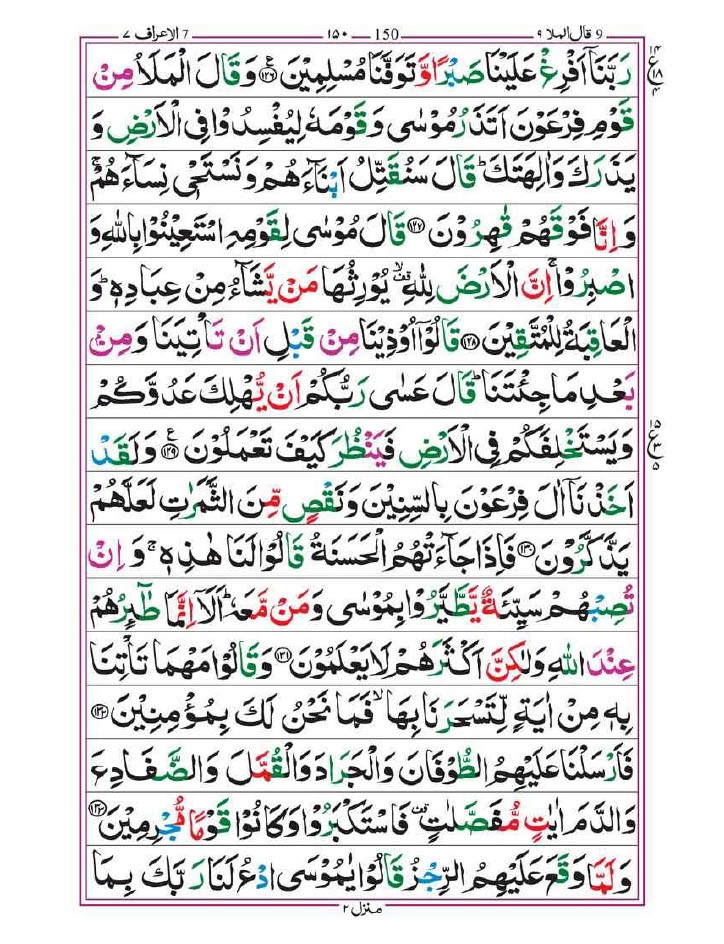 9 قال الملا ٩ — 150 — ١٥٠ — 7 الاعراف ٧
رَبَّنَاۤ اَفْرِغْ عَلَیْنَا صَبْرًا وَّ تَوَفَّنَا مُسْلِمِیْنَ۠ ﴿۱۲۶﴾ وَ قَالَ الْمَلَاُ مِنْ
قَوْمِ فِرْعَوْنَ اَتَذَرُ مُوْسٰى وَ قَوْمَهٗ لِیُفْسِدُوْا فِی الْاَرْضِ وَ
یَذَرَكَ وَ اٰلِهَتَكَ ؕ قَالَ سَنُقَتِّلُ اَبْنَآءَهُمْ وَ نَسْتَحْیٖ نِسَآءَهُمْ ۚ
وَ اِنَّا فَوْقَهُمْ قٰهِرُوْنَ ﴿۱۲۷﴾ قَالَ مُوْسٰى لِقَوْمِهِ اسْتَعِیْنُوْا بِاللّٰهِ وَ
اصْبِرُوْا ۚ اِنَّ الْاَرْضَ لِلّٰهِ ۙ۫ یُوْرِثُهَا مَنْ یَّشَآءُ مِنْ عِبَادِهٖ ؕ وَ
الْعَاقِبَةُ لِلْمُتَّقِیْنَ ﴿۱۲۸﴾ قَالُوْۤا اُوْذِیْنَا مِنْ قَبْلِ اَنْ تَاْتِیَنَا وَ مِنْۢ
بَعْدِ مَا جِئْتَنَا ؕ قَالَ عَسٰى رَبُّكُمْ اَنْ یُّهْلِكَ عَدُوَّكُمْ
وَ یَسْتَخْلِفَكُمْ فِی الْاَرْضِ فَیَنْظُرَ كَیْفَ تَعْمَلُوْنَ۠ ﴿۱۲۹﴾ وَ لَقَدْ
اَخَذْنَاۤ اٰلَ فِرْعَوْنَ بِالسِّنِیْنَ وَ نَقْصٍ مِّنَ الثَّمَرٰتِ لَعَلَّهُمْ
یَذَّكَّرُوْنَ ﴿۱۳۰﴾ فَاِذَا جَآءَتْهُمُ الْحَسَنَةُ قَالُوْا لَنَا هٰذِهٖ ۚ وَ اِنْ
تُصِبْهُمْ سَیِّئَةٌ یَّطَّیَّرُوْا بِمُوْسٰى وَ مَنْ مَّعَهٗ ؕ اَلَاۤ اِنَّمَا طٰٓىِٕرُهُمْ
عِنْدَ اللّٰهِ وَ لٰكِنَّ اَكْثَرَهُمْ لَا یَعْلَمُوْنَ ﴿۱۳۱﴾ وَ قَالُوْا مَهْمَا تَاْتِنَا
بِهٖ مِنْ اٰیَةٍ لِّتَسْحَرَنَا بِهَا ۙ فَمَا نَحْنُ لَكَ بِمُؤْمِنِیْنَ ﴿۱۳۲﴾
فَاَرْسَلْنَا عَلَیْهِمُ الطُّوْفَانَ وَ الْجَرَادَ وَ الْقُمَّلَ وَ الضَّفَادِعَ
وَ الدَّمَ اٰیٰتٍ مُّفَصَّلٰتٍ ۫ فَاسْتَكْبَرُوْا وَ كَانُوْا قَوْمًا مُّجْرِمِیْنَ ﴿۱۳۳﴾
وَ لَمَّا وَقَعَ عَلَیْهِمُ الرِّجْزُ قَالُوْا یٰمُوْسَى ادْعُ لَنَا رَبَّكَ بِمَا
منزل ٢